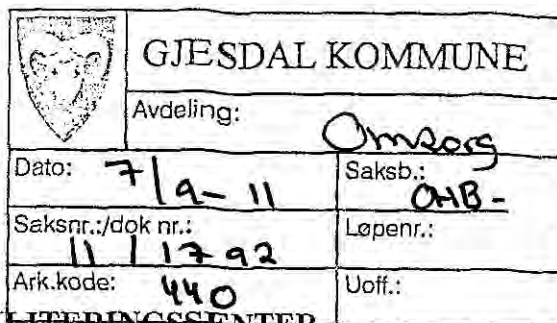 GJESDAL KOMMUNE
Avdeling: Omsorg
Dato: 7/9-11 Saksb.: OHB-
Saksnr.:/dok nr.: 11/1792 Løpenr.:
Ark.kode: 440 Uoff.:
LITERINGSSENTER